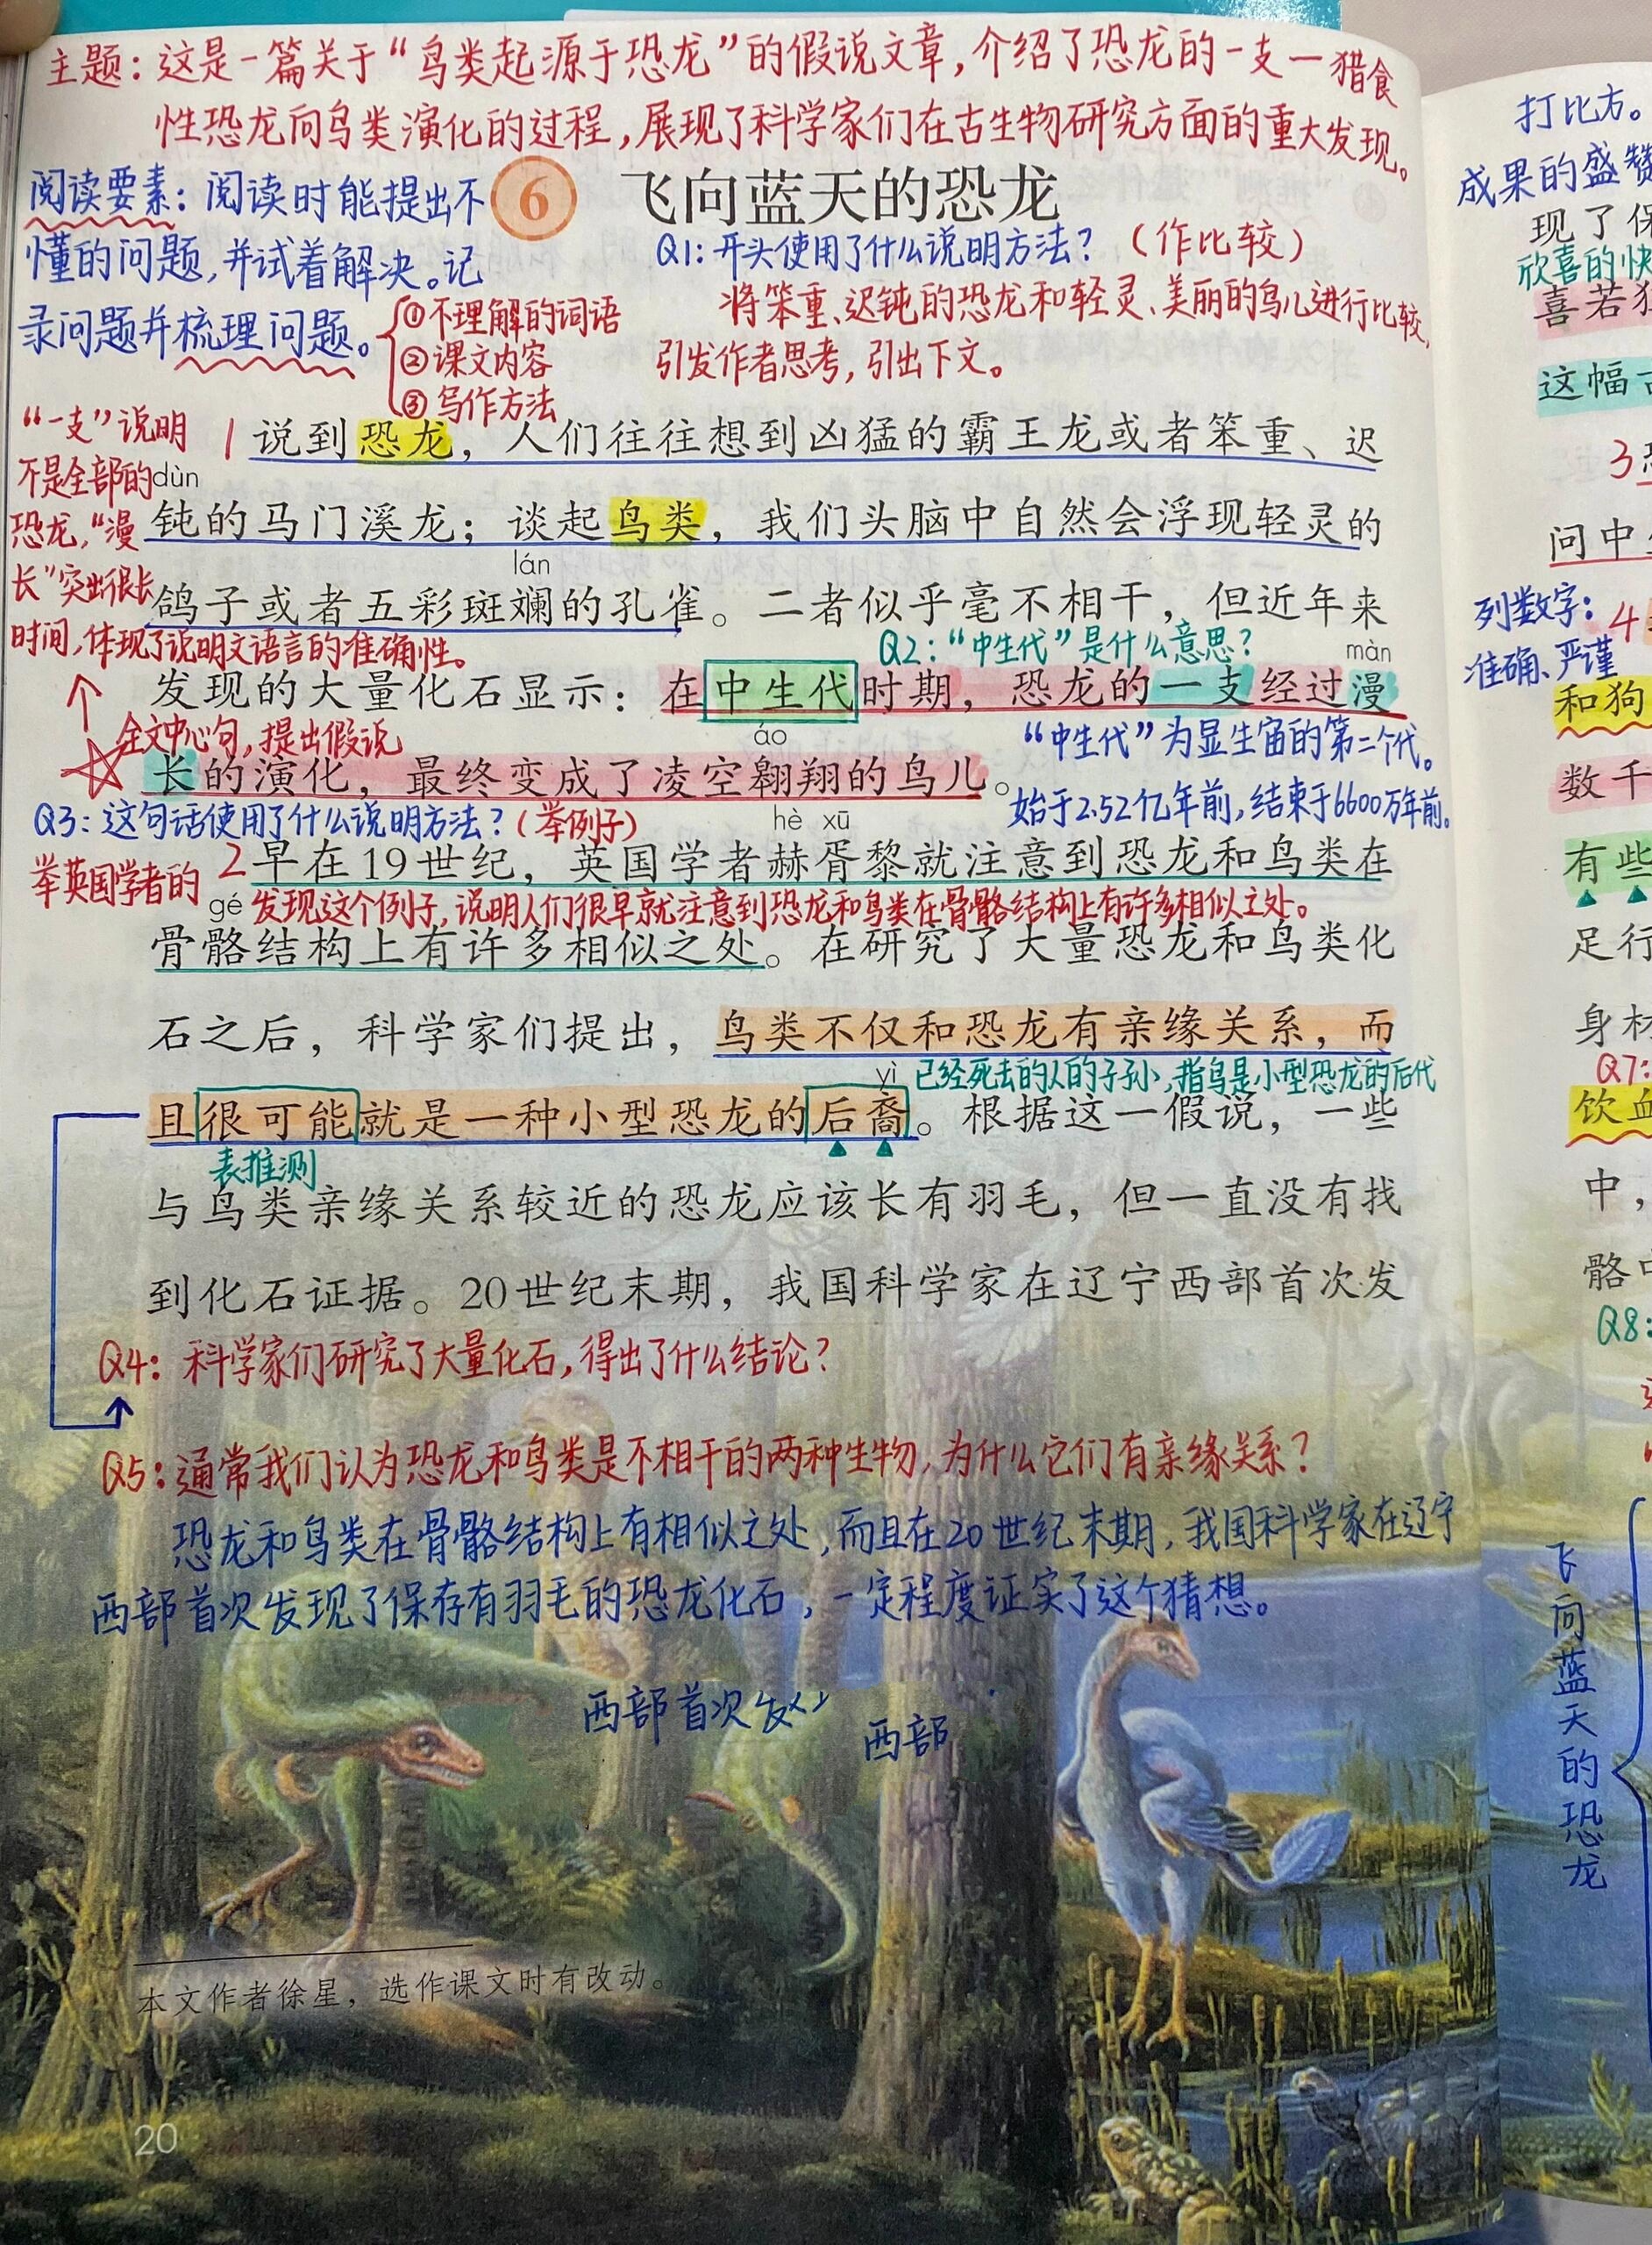 主题：这是一篇关于“鸟类起源于恐龙”的假说文章，介绍了恐龙的一支一猎食
性恐龙向鸟类演化的过程，展现了科学家们在古生物研究方面的重大发现。
阅读要素：阅读时能提出不
懂的问题，并试着解决。记
录问题并梳理问题。
①不理解的词语
②课文内容
③写作方法
6 飞向蓝天的恐龙
Q1：开头使用了什么说明方法？（作比较）
将笨重、迟钝的恐龙和轻灵、美丽的鸟儿进行比较，
引发作者思考，引出下文。
“一支”说明
不是全部的
恐龙，“漫
长”突出很长
时间，体现了说明文语言的准确性。
1 说到恐龙，人们往往想到凶猛的霸王龙或者笨重、迟
dùn
钝的马门溪龙；谈起鸟类，我们头脑中自然会浮现轻灵的
lán
鸽子或者五彩斑斓的孔雀。二者似乎毫不相干，但近年来
Q2：“中生代”是什么意思？
màn
发现的大量化石显示：在中生代时期，恐龙的一支经过漫
全文中心句，提出假说
áo
“中生代”为显生宙的第二个代。
长的演化，最终变成了凌空翱翔的鸟儿。
始于2.52亿年前，结束于6600万年前。
Q3：这句话使用了什么说明方法？（举例子）
hè xū
2 早在19世纪，英国学者赫胥黎就注意到恐龙和鸟类在
举英国学者的
发现这个例子，说明人们很早就注意到恐龙和鸟类在骨骼结构上有许多相似之处。
gé
骨骼结构上有许多相似之处。在研究了大量恐龙和鸟类化
石之后，科学家们提出，鸟类不仅和恐龙有亲缘关系，而
yì
已经死去的人的子子孙，指鸟是小型恐龙的后代
且很可能就是一种小型恐龙的后裔。根据这一假说，一些
表推测
与鸟类亲缘关系较近的恐龙应该长有羽毛，但一直没有找
到化石证据。20世纪末期，我国科学家在辽宁西部首次发
Q4：科学家们研究了大量化石，得出了什么结论？
Q5：通常我们认为恐龙和鸟类是不相干的两种生物，为什么它们有亲缘关系？
恐龙和鸟类在骨骼结构上有相似之处，而且在20世纪末期，我国科学家在辽宁
西部首次发现了保存有羽毛的恐龙化石，一定程度证实了这个猜想。
西部首次发
西部
本文作者徐星，选作课文时有改动。
20
打比方。
成果的盛赞
现了保
欣喜的快
喜若狂
这幅古
3
问中
列数字：
准确、严谨
4
和狗
数千
有些
足行
身材
Q7：
饮血
中，
骼中
Q8：
飞向蓝天的恐龙